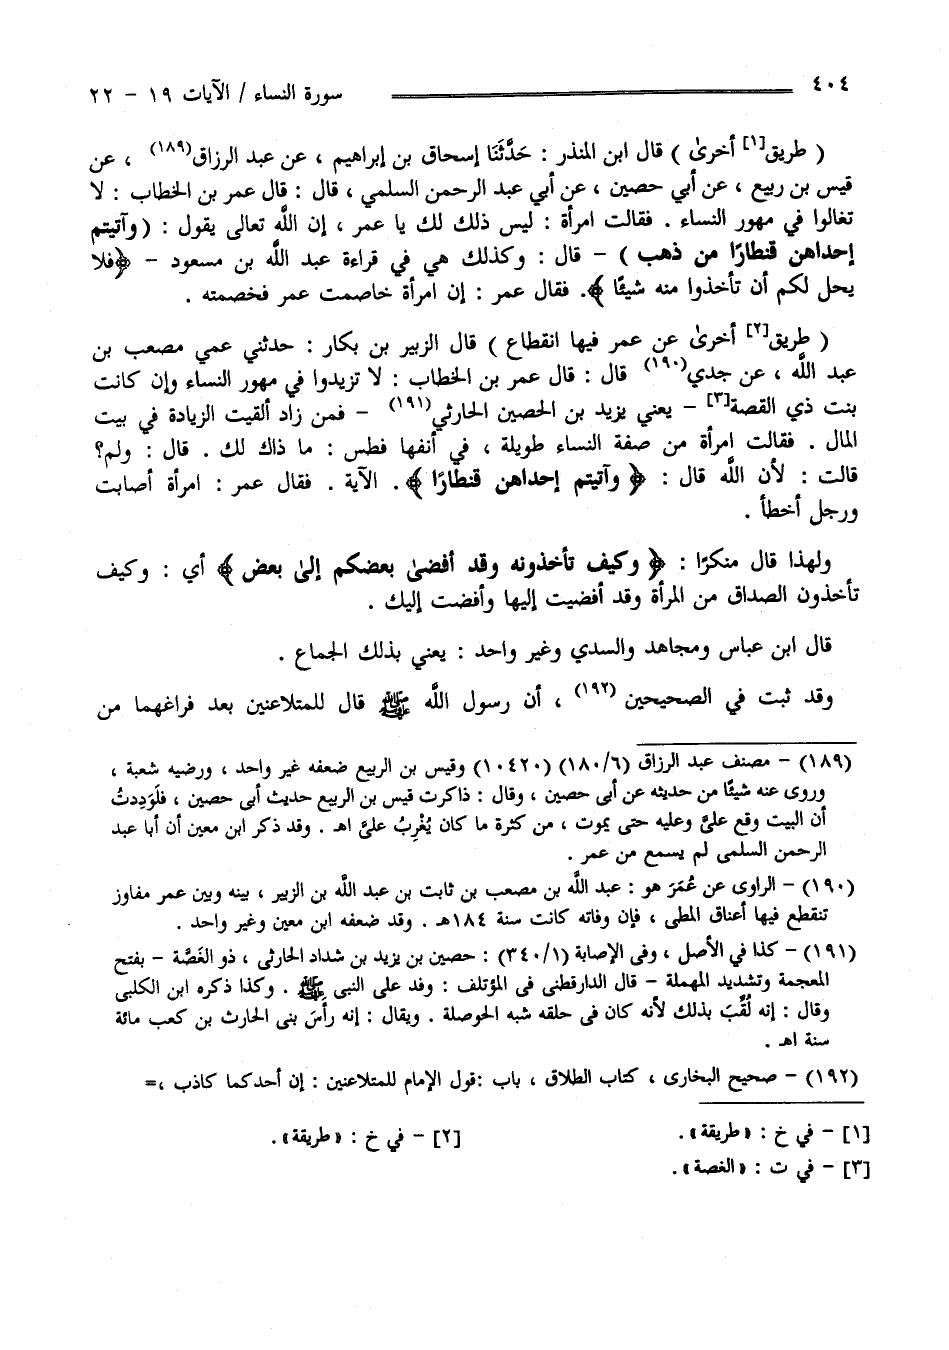 ٤٠٤ سورة النساء / الآيات ١٩ - ٢٢
( طريق[١] أخرىٰ ) قال ابن المنذر : حَدَّثَنَا إسحاق بن إبراهيم ، عن عبد الرزاق(١٨٩) ، عن
قيس بن ربيع ، عن أبي حصين ، عن أبي عبد الرحمن السلمي ، قال : قال عمر بن الخطاب : لا
تغالوا في مهور النساء . فقالت امرأة : ليس ذلك لك يا عمر ، إن اللَّه تعالى يقول : ( وآتيتم
إحداهن قنطارًا من ذهب ) - قال : وكذلك هي في قراءة عبد اللَّه بن مسعود - ﴿فلا
يحل لكم أن تأخذوا منه شيئًا ﴾. فقال عمر : إن امرأة خاصمت عمر فخصمته .
( طريق[٢] أخرىٰ عن عمر فيها انقطاع ) قال الزبير بن بكار : حدثني عمي مصعب بن
عبد اللَّه ، عن جدي(١٩٠) قال : قال عمر بن الخطاب : لا تزيدوا في مهور النساء وإن كانت
بنت ذي القصة[٣] - يعني يزيد بن الحصين الحارثي(١٩١) - فمن زاد ألقيت الزيادة في بيت
المال . فقالت امرأة من صفة النساء طويلة ، في أنفها فطس : ما ذاك لك . قال : ولم؟
قالت : لأن اللَّه قال : ﴿ وآتيتم إحداهن قنطارًا ﴾. الآية . فقال عمر : امرأة أصابت
ورجل أخطأ .
ولهذا قال منكرًا : ﴿ وكيف تأخذونه وقد أفضىٰ بعضكم إلىٰ بعض ﴾ أي : وكيف
تأخذون الصداق من المرأة وقد أفضيت إليها وأفضت إليك .
قال ابن عباس ومجاهد والسدي وغير واحد : يعني بذلك الجماع .
وقد ثبت في الصحيحين (١٩٢) ، أن رسول اللَّه ﷺ قال للمتلاعنين بعد فراغهما من
(١٨٩) - مصنف عبد الرزاق (١٨٠/٦) (١٠٤٢٠) وقيس بن الربيع ضعفه غير واحد ، ورضيه شعبة ،
وروى عنه شيئًا من حديثه عن أبى حصين ، وقال : ذاكرت قيس بن الربيع حديث أبى حصين ، فلَوَدِدتُ
أن البيت وقع علىَّ وعليه حتى يموت ، من كثرة ما كان يُغْرِبُ علىَّ اهـ . وقد ذكر ابن معين أن أبا عبد
الرحمن السلمى لم يسمع من عمر .
(١٩٠) - الراوى عن عُمَرَ هو : عبد اللَّه بن مصعب بن ثابت بن عبد اللَّه بن الزبير ، بينه وبين عمر مفاوز
تنقطع فيها أعناق المطى ، فإن وفاته كانت سنة ١٨٤هـ . وقد ضعفه ابن معين وغير واحد .
(١٩١) - كذا في الأصل ، وفى الإصابة (٣٤٠/١) : حصين بن يزيد بن شداد الحارثى ، ذو الغَصَّة - بفتح
المعجمة وتشديد المهملة - قال الدارقطنى فى المؤتلف : وفد على النبى ﷺ . وكذا ذكره ابن الكلبى
وقال : إنه لُقِّبَ بذلك لأنه كان فى حلقه شبه الحوصلة . ويقال : إنه رأسَ بنى الحارث بن كعب مائة
سنة اهـ .
(١٩٢) - صحيح البخارى ، كتاب الطلاق ، باب :قول الإمام للمتلاعنين : إن أحدكما كاذب ،=
[١] - في خ : «طريقة». [٢] - في خ : «طريقة».
[٣] - في ت : «الغصة».